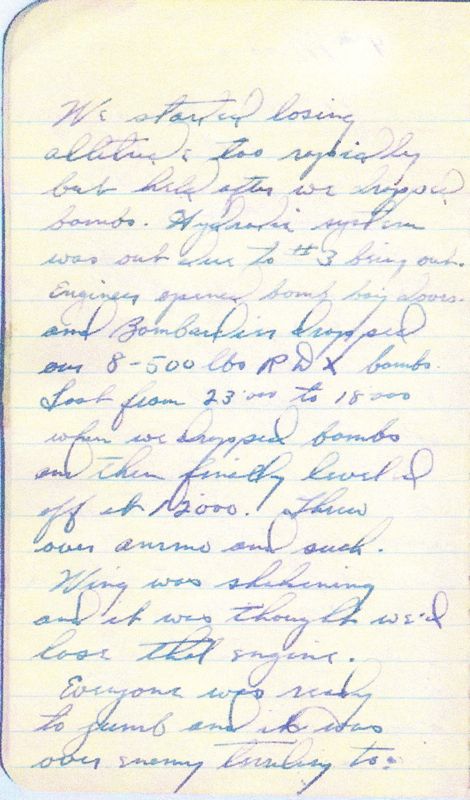 We started losing
altitude too rapidly
but held after we dropped
bombs. Hydralic system
was out due to #3 being out.
Engineer opened bomb bay doors
and Bombardier dropped
our 8-500 lbs RDX bombs.
Lost from 23000 to 18000
when we dropped bombs
and then finally leveled
off at 12000. Threw
over ammo and such.
Wing was
and it was thought we'd
lose that engine.
Everyone was ready
to jumb and it was
over enemy to.